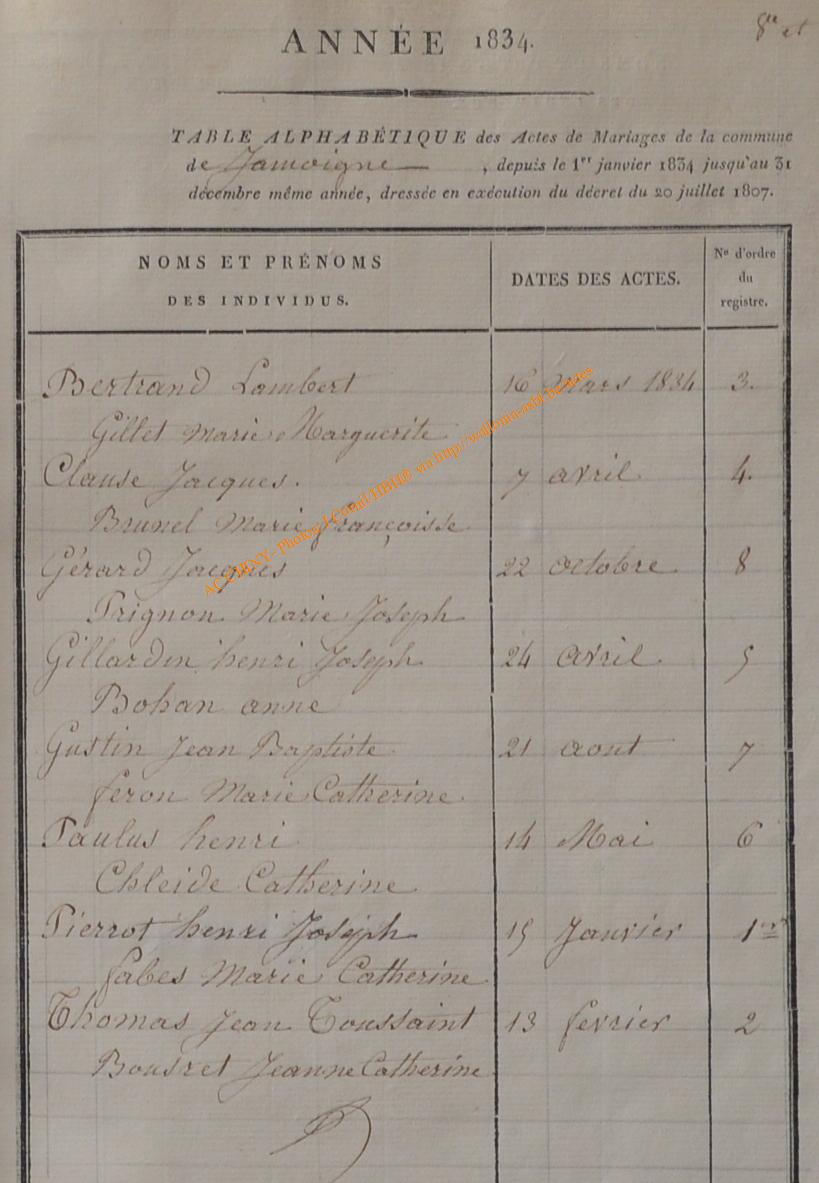 8 et
ANNÉE 1834.
TABLE ALPHABÉTIQUE des Actes de Mariages de la commune
de Jamoigne , depuis le 1er janvier 1834 jusqu'au 31
décembre même année, dressée en exécution du décret du 20 juillet 1807.
NOMS ET PRÉNOMS DES INDIVIDUS. DATES DES ACTES. No d'ordre du registre.
Bertrand Lambert 16 Mars 1834 3.
Gillet Marie Marguerite
Clause Jacques. 7 avril 4.
Brunel Marie françoisse
Gérard Jacques 22 octobre 8
Trignon Marie Joseph
Gillardin henri Joseph 24 avril 5
Bohan anne
Gustin Jean Baptiste 21 aout 7
feron Marie Catherine
Paulus henri 14 Mai 6
Chleide Catherine
Pierrot henri Joseph 15 Janvier 1er
fabes Marie Catherine
Thomas Jean Toussaint 13 fevrier 2
Bousret Jeanne Catherine